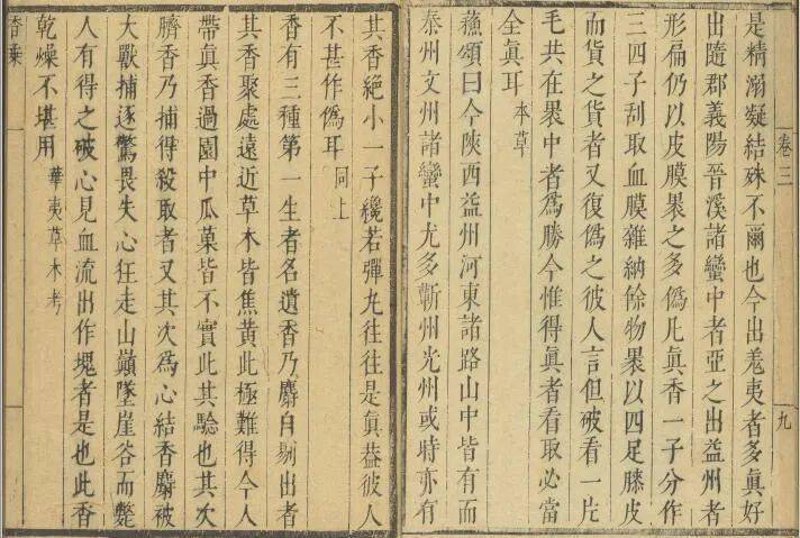 卷三
九
是精溺凝結殊不爾也今出羗夷者多真好
出隨郡義陽晉溪諸蠻中者亞之出益州者
形扁仍以皮膜裹之多僞凡真香一子分作
三四子刮取血膜雜納餘物裹以四足膝皮
而貨之貨者又復僞之彼人言但破看一片
毛共在裹中者爲勝今惟得真者看取必當
全真耳 本草
蘓頌曰今陝西益州河東諸路山中皆有而
秦州文州諸蠻中尤多蘄州光州或時亦有
其香絕小一子纔若彈丸往往是真葢彼人
不甚作僞耳 同上
香有三種第一生者名遺香乃麝自剔出者
其香聚處遠近草木皆焦黃此極難得今人
帶真香過園中瓜菓皆不實此其驗也其次
臍香乃捕得殺取者又其次爲心結香麝被
大獸捕逐驚畏失心狂走山巔墜崖谷而斃
人有得之破心見血流出作塊者是也此香
乾燥不堪用 華夷草木考
香乘